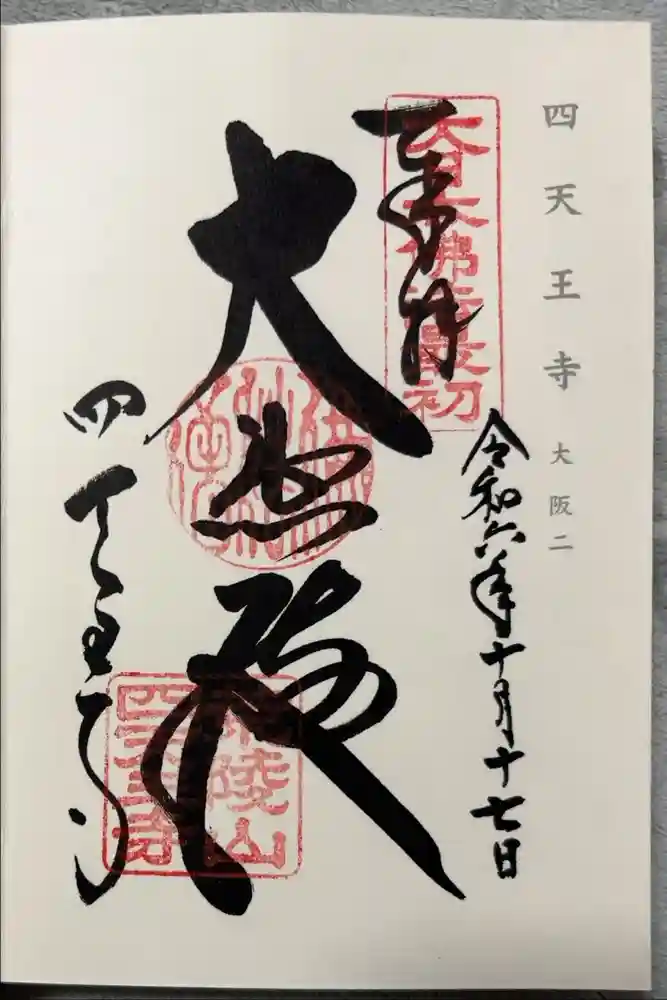 四天王寺 大阪二
奉拝
大日本佛法最初
令和六年十月十七日
大悲殿
四天王寺
荒陵山
四天王寺